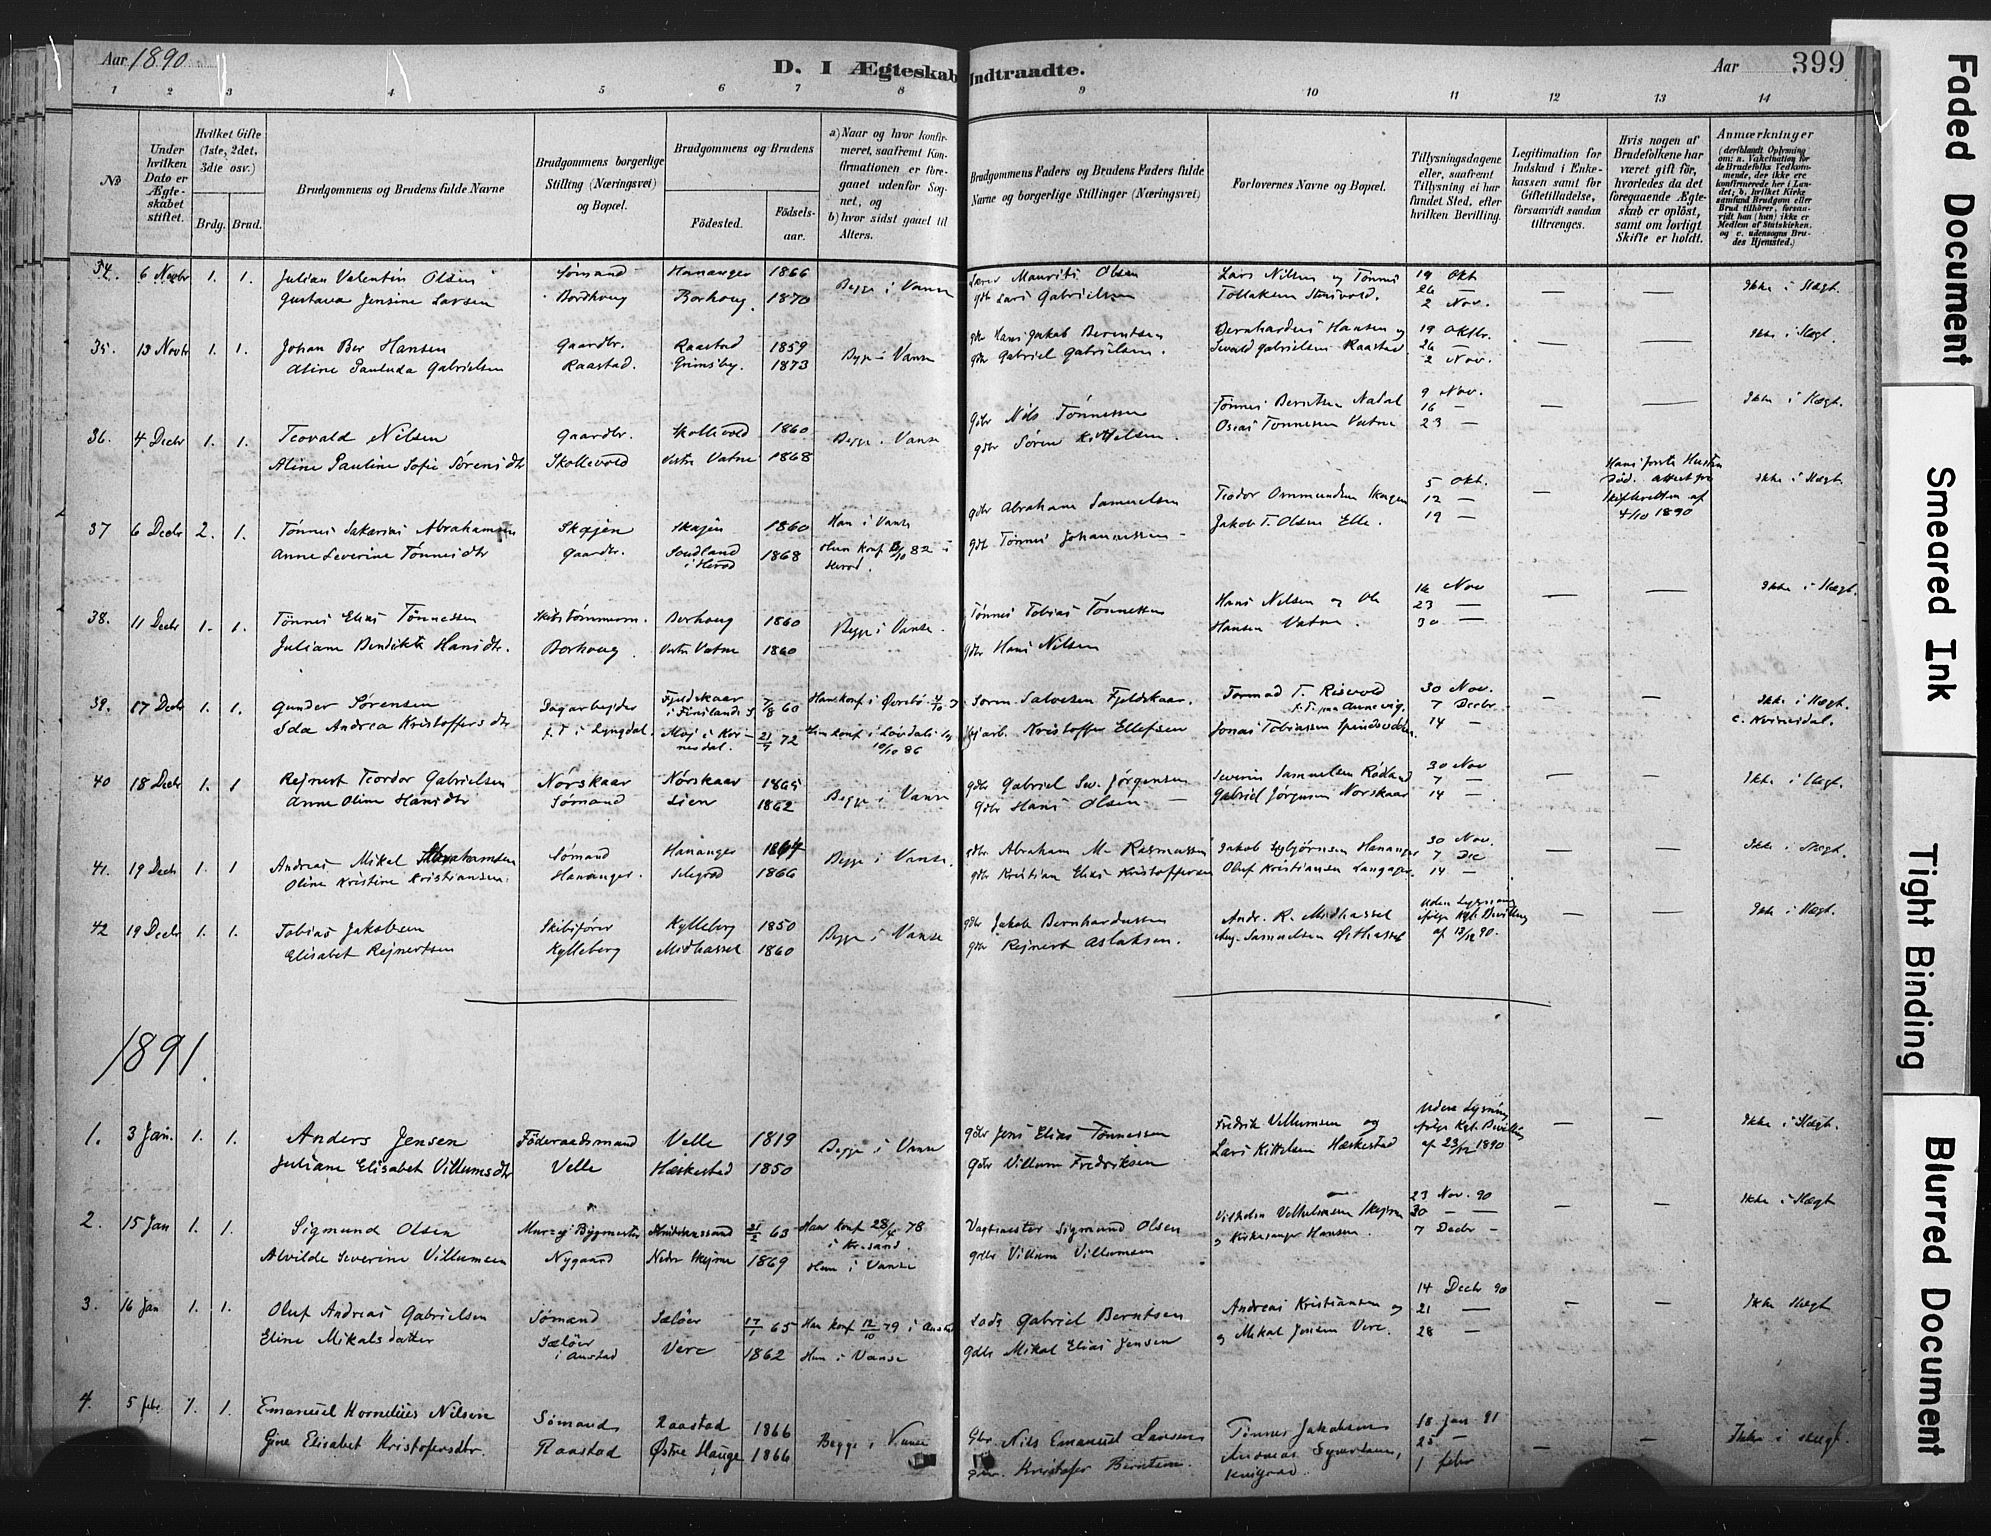 Aar 1890
D. I Ægteskab Indtraadte.
Aar
399
1 2 3 4 5 6 7 8 9 10 11 12 13 14
No
Under hvilken Dato er Ægteskabet stiftet.
Hvilket Gifte (1ste, 2det, 3die osv.)
Brdg. Brud.
Brudgommens og Brudens fulde Navne
Brudgommens borgerlige Stilling (Næringsvei) og Bopæl.
Brudgommens og Brudens
Födested.
Födselsaar.
a) Naar og hvor konfirmeret, saafremt Konfirmationen er foregaaet udenfor Sognet, og
b) hvor sidst gaaet til Alters.
Brudgommens Faders og Brudens Faders fulde Navne og borgerlige Stillinger (Næringsvei)
Forlovernes Navne og Bopæl.
Tillysningsdagene eller, saafremt Tillysning ei har fundet Sted, efter hvilken Bevilling.
Legitimation for Indskud i Enkekassen samt for Giftetilladelse, forsaavidt saadan tiltrænges.
Hvis nogen af Brudefolkene har været gift för, hvorledes da det foregaaende Ægteskab er oplöst, samt om lovligt Skifte er holdt.
Anmærkninger (deriblandt Oplysning om: a. Vakcination for de Brudefolks Vedkommende, der ikke ere konfirmerede her i Landet; b. hvilket Kirkesamfund Brudgom eller Brud tilhörer, forsaavidt han (hun) ikke er Medlem af Statskirken. og c. udensogns Brudes Hjemsted.)
34. 6 Novbr 1. 1. Julian Valentin Olsen Sømand Hananger 1866 Begge i Vanse Lærer Maurits Olsen Lars Nilsen og Tønnes 19 Okt — — Ikke i Slægt.
Gustava Jensine Larsen Bordhoug Borhoug 1870 gdbr Lars Gabrielsen Tollaksen 26 —
2 Nov.
35. 13 Novbr 1. 1. Johan Ber Hansen Gaardbr. Raastad 1859 Begge i Vanse gdbr Hans Jakob Berentsen Bernhardus Hansen og 19 Oktbr. — — Ikke i Slægt.
Aline Gabrielsen Raastad. Grimsby. 1873 gdbr Gabriel Gabrielsen. Sevald Gabrielsen Raastad 26 —
2 Nov.
36. 4 Decbr 1. 1. Teovald Nilsen Gaardbr. Skollevold 1860 Begge i Vanse gdbr Nils Tønnessen Tønnes Berntsen 9 Nov. — — Ikke i Slægt.
Aline Pauline Sofie Sørensdtr Skollevold Vestre Vatne 1868 gdbr Søren Kittelsen. Oseas Tønnesen Vatne 16 —
23 —
37 6 Decbr 2. 1. Tønnes Sakarias Abrahamsen Skejen Skejen 1860 Han i Vanse gdbr Abraham Samuelsen Teodor Skejen 5 Okt. — Hans første Hustru død. Attest fra Skifteretten af 4/10 1890 Ikke i Slægt.
Anne Severine Tønnesdtr Gaardbr. Sandland i Herad 1868 Hun konf 82 i Herad. gdbr Tønnes Johannessen Jakob T. Olsen Elle. 12 —
19 —
38. 11 Decbr 1. 1. Tönnes Elias Tönnessen Skibstømmerm. Borhoug 1860 Begge i Vanse. Tönnes Tobias Tönnessen Hans Nilsen og Ole 16 Nov — — Ikke i Slægt.
Juliane Bendikte Hansdtr. Borhoug Vestre Vatne 1860 gdbr Hans Nilsen Hansen Vatne. 23 —
30 —
39. 17 Decbr 1. 1. Gunder Sørensen Dagarbejder Fjeldskaar i Finsland 60 Han konf i Øvrebø Søren Salvesen Fjeldskaar. Tormod T. Risvold 30 Nov. — — Ikke i Slægt.
Ida Andrea Kristoffersdtr f.T. i Lyngdal. Moi i Kvinesdal. 72 Hun konf i 10/10 86 Kristoffer Ellefsen Jonas Tobiassen 7 Decbr c. Kvinesdal.
14 —
40 18 Decbr 1. 1 Rejnert Teordor Gabrielsen Nørskaar Nørskaar 1865 Begge i Vanse gdbr Gabriel Sev. Jørgensen Severin Samuelsen Rødland 30 Nov — — Ikke i Slægt.
Anne Oline Hansdtr Sømand Lien 1862 gdbr Hans Olsen Gabriel Jørgensen Nørskaar 7 —
14 —
41. 19 Decbr 1. 1 Andreas Mikal Abrahamsen Sømand Hananger 1864 Begge i Vanse. gdbr Abraham M. Rasmussen Jakob Hananger 30 Nov. — — Ikke i Slægt.
Oline Kristine Kristiansen. Hananger. 1866 gdbr Kristian Elias Kristoffersen Oluf Kristiansen 7 Dec
14 —
42 19 Decbr 1. 1. Tobias Jakobsen Skibsfører Kylleberg 1850 Begge i Vanse gdbr Jakob Bernhardussen Andr. R. Midhassel Uden Lysning ifølge Kgl. Bevilling af 13/12 90. — — Ikke i Slægt.
Elisabet Rejnertsen Kylleberg Midhassel 1860 gdbr Rejnert Aslaksen. Aug. Samuelsen Østhassel
1891.
1. 3 Jan. 1. 1. Anders Jensen Föderaadsmand Velle 1819 Begge i Vanse gdbr Jens Elias Tønnessen Fredrik Villumsen og Uden Lysning ifølge Kgl. Bevilling af 23/12 1890 — — Ikke i Slægt.
Juliane Elisabet Villumsdtr Velle Hæskestad 1850 gdbr Villum Fredriksen Lars Kittelsen Hæskestad
2. 15 Jan 1. 1. Sigmund Olsen Murer og Bygmester Kristianssand 21/2 63 Han konf 28/4 78 i Kr.sand. Vagtmester Sigmund Olsen Vilhelm Velhelmsen Skejen 23 Nov. 90 — — Ikke i Slægt
Alvilde Severine Villumsen Nygaard Nedre Skejen 1869 Hun i Vanse gdbr Villum Villumsen og Kirkesanger Hansen. 30 — —
7 Decbr —
3. 16 Jan 1. 1. Oluf Andreas Gabrielsen Sømand Sæløer 17/1 65 Han konf 12/10 79 i Austad Lods Gabriel Berntsen Andreas Kristiansen og 14 Decbr 90 — — Ikke Slægt
Eline Mikalsdatter Sæløer i Austad Vere 1862 Hun i Vanse gdbr Mikal Elias Jensen og Mikal Jensen Vere. 21 —
28 —
4. 5 febr. 1. 1. Emanuel Kornelius Nilsen Sømand Raastad 1866 Begge i Vanse Gbr. Nils Emanuel Larsen Tønnes Jakobsen 18 Jan 91 — — Ikke i slægt.
Gine Elisabet Kristofersdtr. Raastad Østre Hauge 1866 Kristofer Berntsen. Andreas 25 —
1 febr
Faded Document
Smeared Ink
Tight Binding
Blurred Document